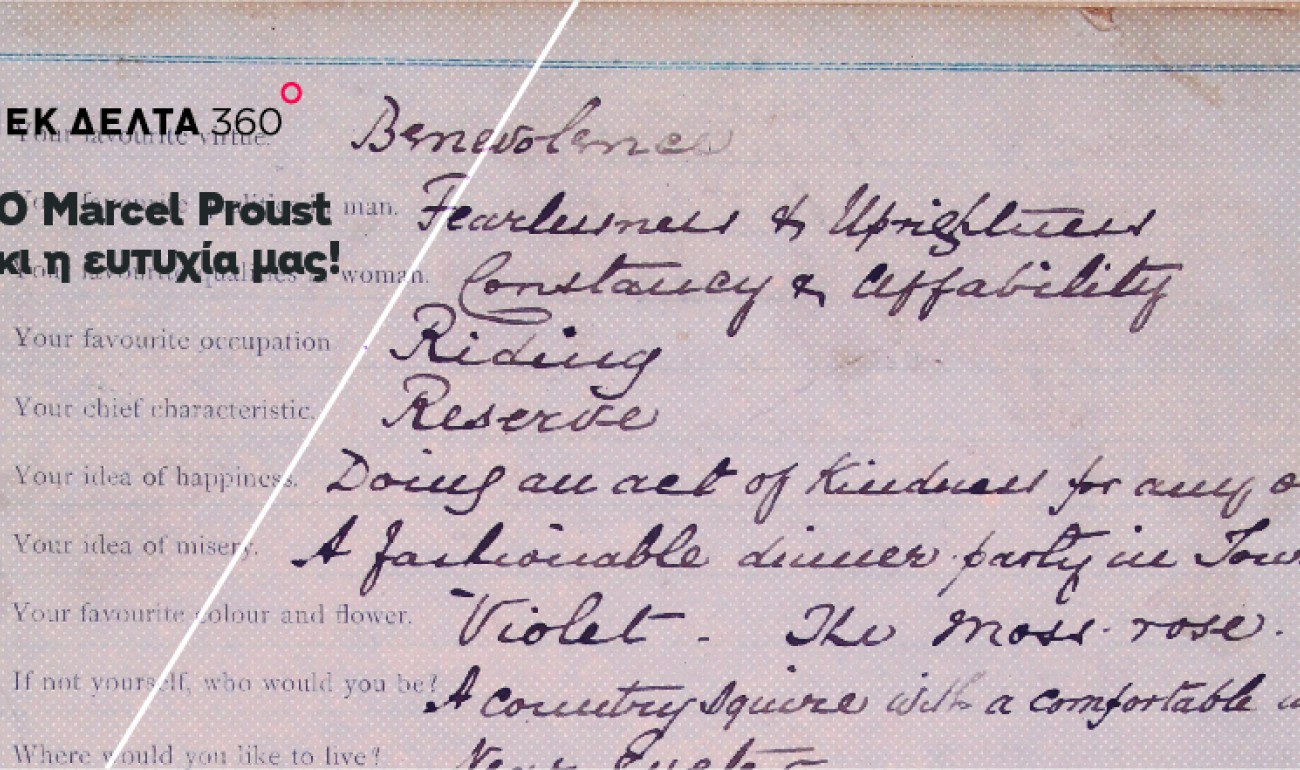 ΕΚ ΔΕΛΤΑ 360
Your favourite virtue. Benevolence
Ο Marcel Proust
man. Fearlessness & Uprightness
κι η ευτυχία μας!
Your favourite qualities in woman. Constancy & Affability
Your favourite occupation Riding
Your chief characteristic. Reserve
Your idea of happiness. Doing an act of kindness for any
Your idea of misery. A fashionable dinner-party in
Your favourite colour and flower. Violet - The Moss-rose.
If not yourself, who would you be? A country Squire with a comfortable
Where would you like to live? Near